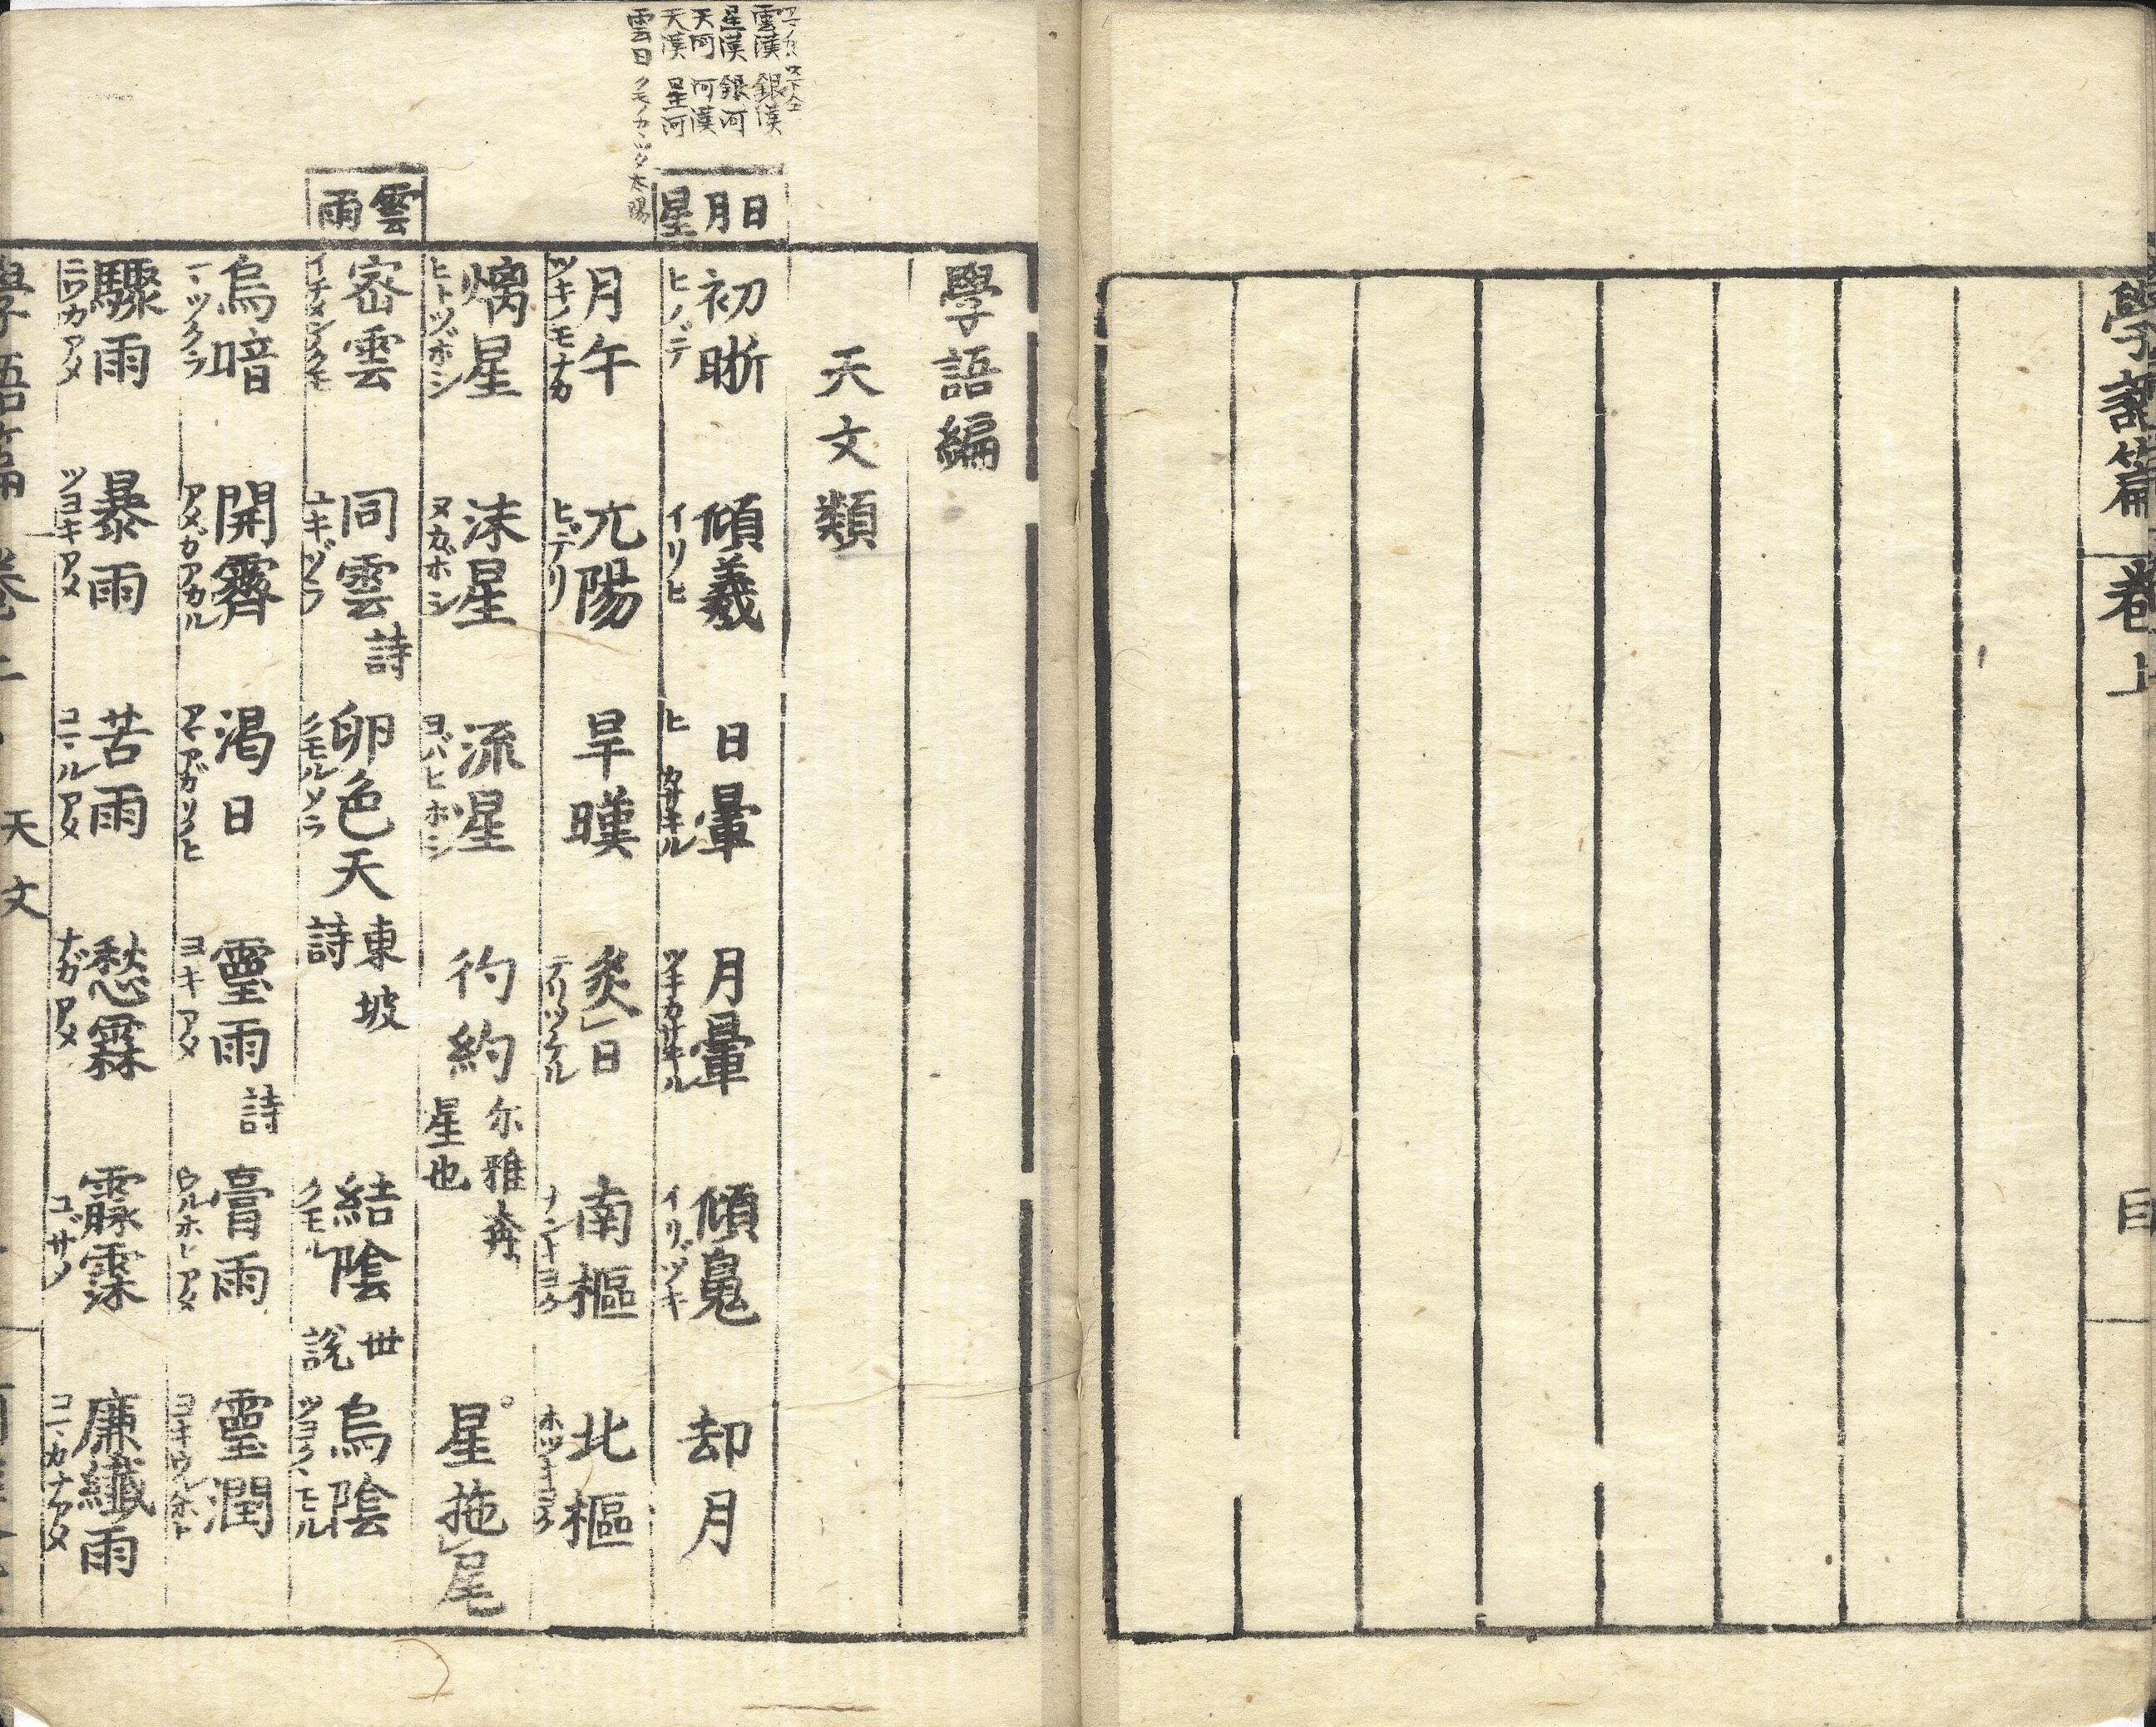 學語篇
卷上
目
學語編
天文類
アマノカハ
雲漢 銀漢
星漢 銀河
天河 河漢
天漢 星河
雲日
太陽
日月星
初晰 傾羲 日暈 月暈 傾鳧 却月
ヒノデ イリヒ ヒ カサキル ツキカサキル イリヅキ
月午 亢陽 旱暵 炙日 南樞 北樞
ツキノモナカ ヒデリ テリツケル ナンキヨク ホツキヨク
燏星 沫星 流星 彴約 尔雅奔星也 星拖尾
ヒトツボシ ヌカボシ ヨバヒホシ
雲雨
宻雲 同雲 詩 卵色天 東坡詩 結陰 世説 烏陰
イチメンノクモ ユキヅラ クモルソラ クモル ツヨククモル
烏暗 開霽 渇日 靈雨 詩 膏雨 靈潤
マツクラ アメガアカル アマアガリノヒ ヨキアメ ウルホヒアメ ヨキウルホヒ
驟雨 暴雨 苦雨 愁霖 霡霂 廉纖雨
ニワカアメ ツヨキアメ コマルアメ ナガアメ コサメ コマカナアメ
學語篇 卷上 天文